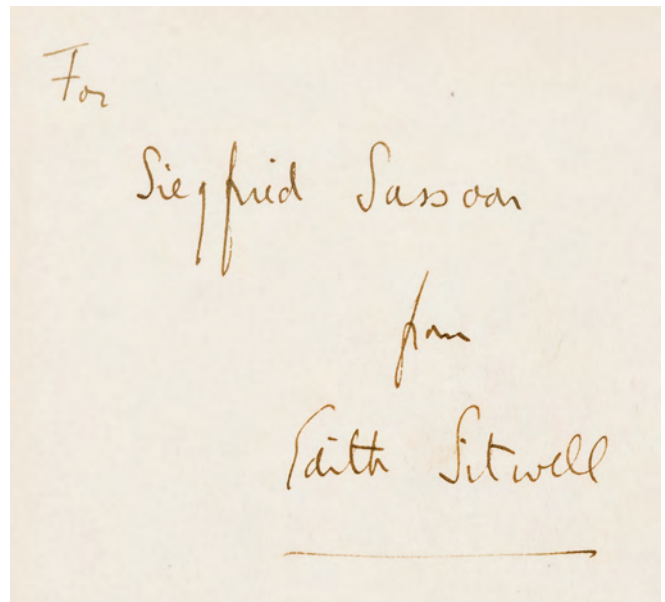 For
Siegfried Sassoon
from
Edith Sitwell